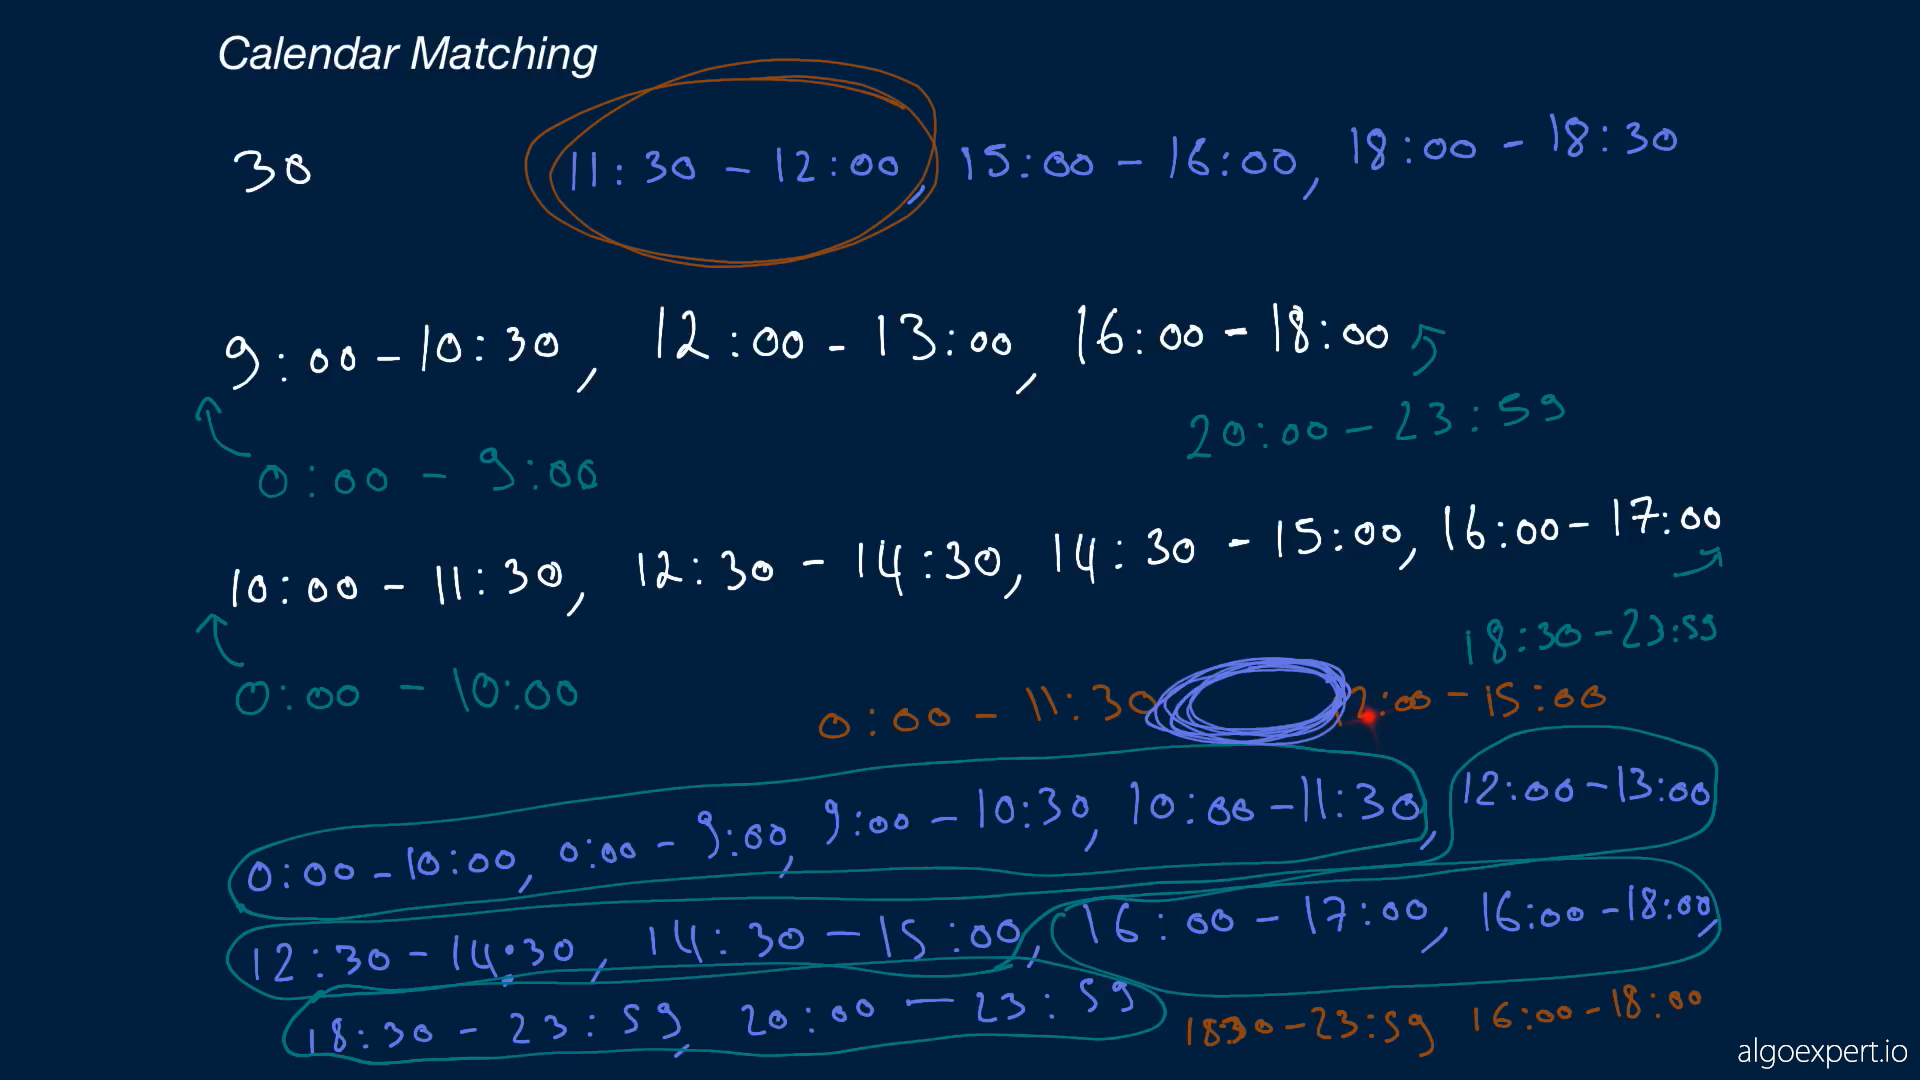 Calendar Matching
30 11:30 - 12:00, 15:00 - 16:00, 18:00 - 18:30
9:00 - 10:30, 12:00 - 13:00, 16:00 - 18:00
20:00 - 23:59
0:00 - 9:00
10:00 - 11:30, 12:30 - 14:30, 14:30 - 15:00, 16:00 - 17:00
18:30 - 23:59
0:00 - 10:00
0:00 - 11:30 12:00 - 15:00
0:00 - 10:00, 0:00 - 9:00, 9:00 - 10:30, 10:00 - 11:30, 12:00 - 13:00
12:30 - 14:30, 14:30 - 15:00, 16:00 - 17:00, 16:00 - 18:00,
18:30 - 23:59, 20:00 - 23:59 18:30 - 23:59 16:00 - 18:00
algoexpert.io